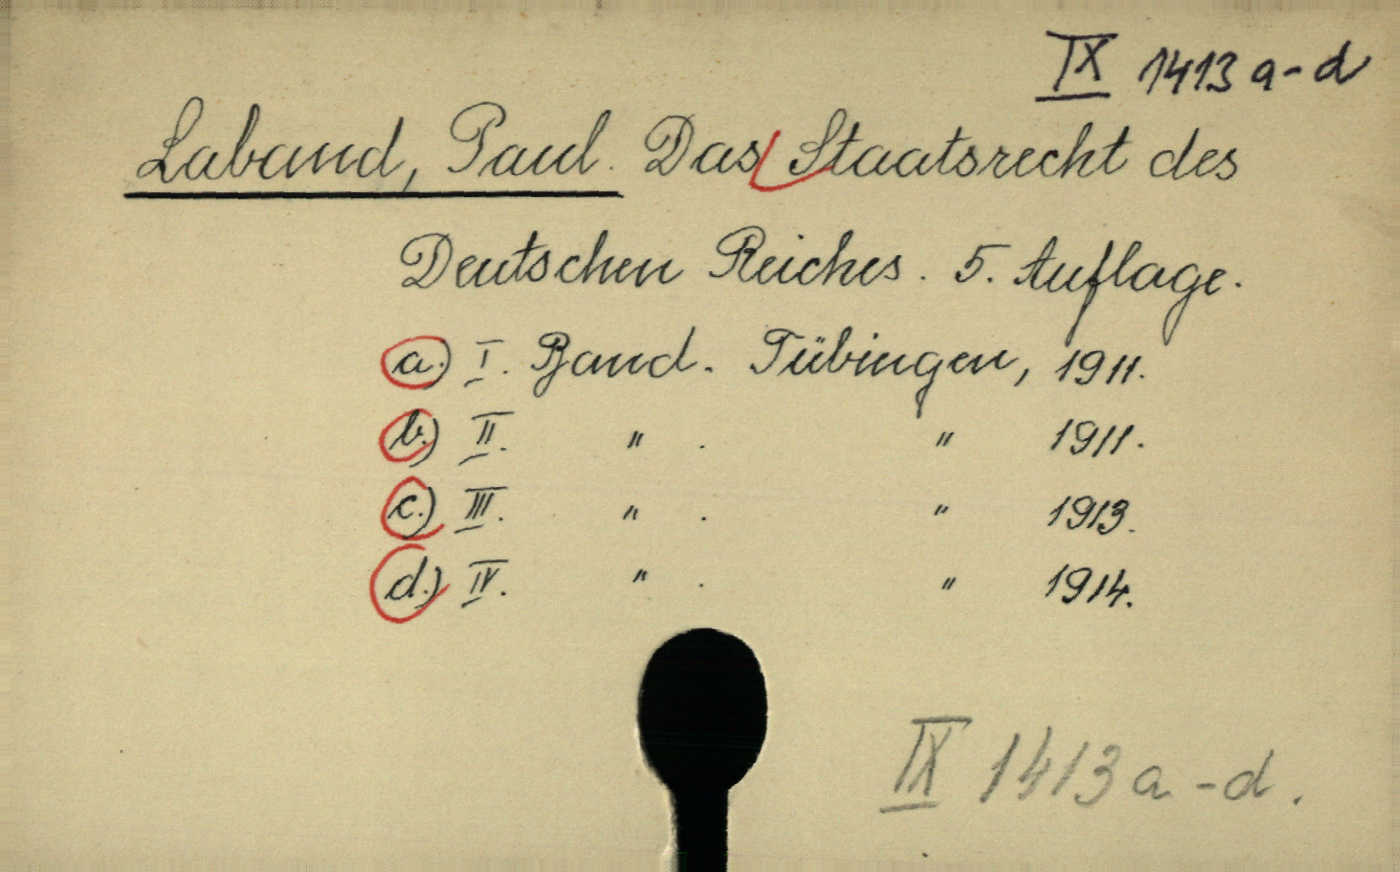 IX 1413 a-d
Laband, Paul. Das Staatsrecht des
Deutschen Reiches. 5. Auflage.
a.) I. Band. Tübingen, 1911.
b.) II. " . " 1911.
c.) III. " . " 1913.
d.) IV. " . " 1914.
IX 1413 a-d.